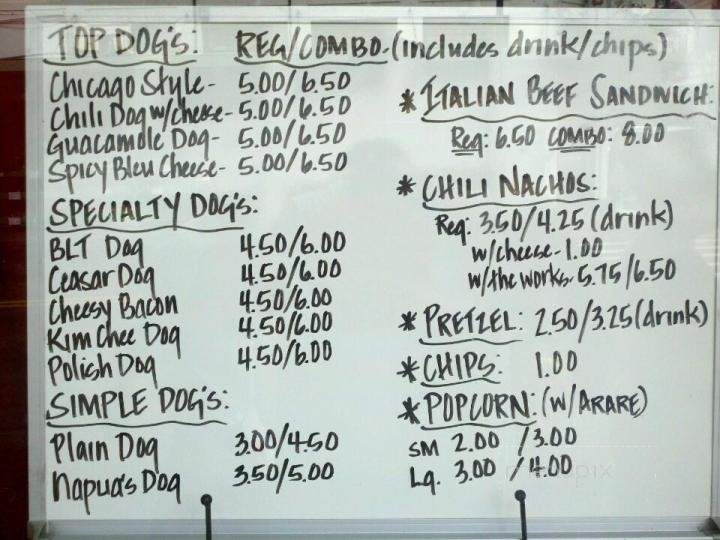 TOP DOG's: REG/COMBO-(includes drink/chips)
Chicago Style- 5.00/6.50
Chili Dog w/cheese- 5.00/6.50
Guacamole Dog- 5.00/6.50
Spicy Bleu Cheese- 5.00/6.50
SPECIALTY DOG's:
BLT Dog 4.50/6.00
Ceasar Dog 4.50/6.00
Cheesy Bacon 4.50/6.00
Kim Chee Dog 4.50/6.00
Polish Dog 4.50/6.00
SIMPLE DOG's:
Plain Dog 3.00/4.50
Napua's Dog 3.50/5.00
* ITALIAN BEEF SANDWICH:
Reg: 6.50 COMBO: 8.00
* CHILI NACHOS:
Reg: 3.50/4.25 (drink)
w/cheese-1.00
w/the works-5.75/6.50
* PRETZEL: 2.50/3.25 (drink)
* CHIPS: 1.00
* POPCORN: (W/ARARE)
SM 2.00 /3.00
Lg. 3.00 /4.00